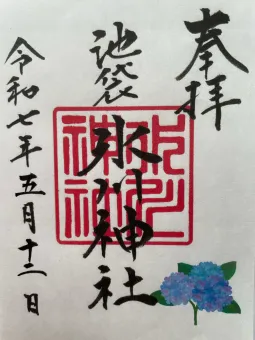 奉拝
池袋氷川神社
令和七年五月十二日